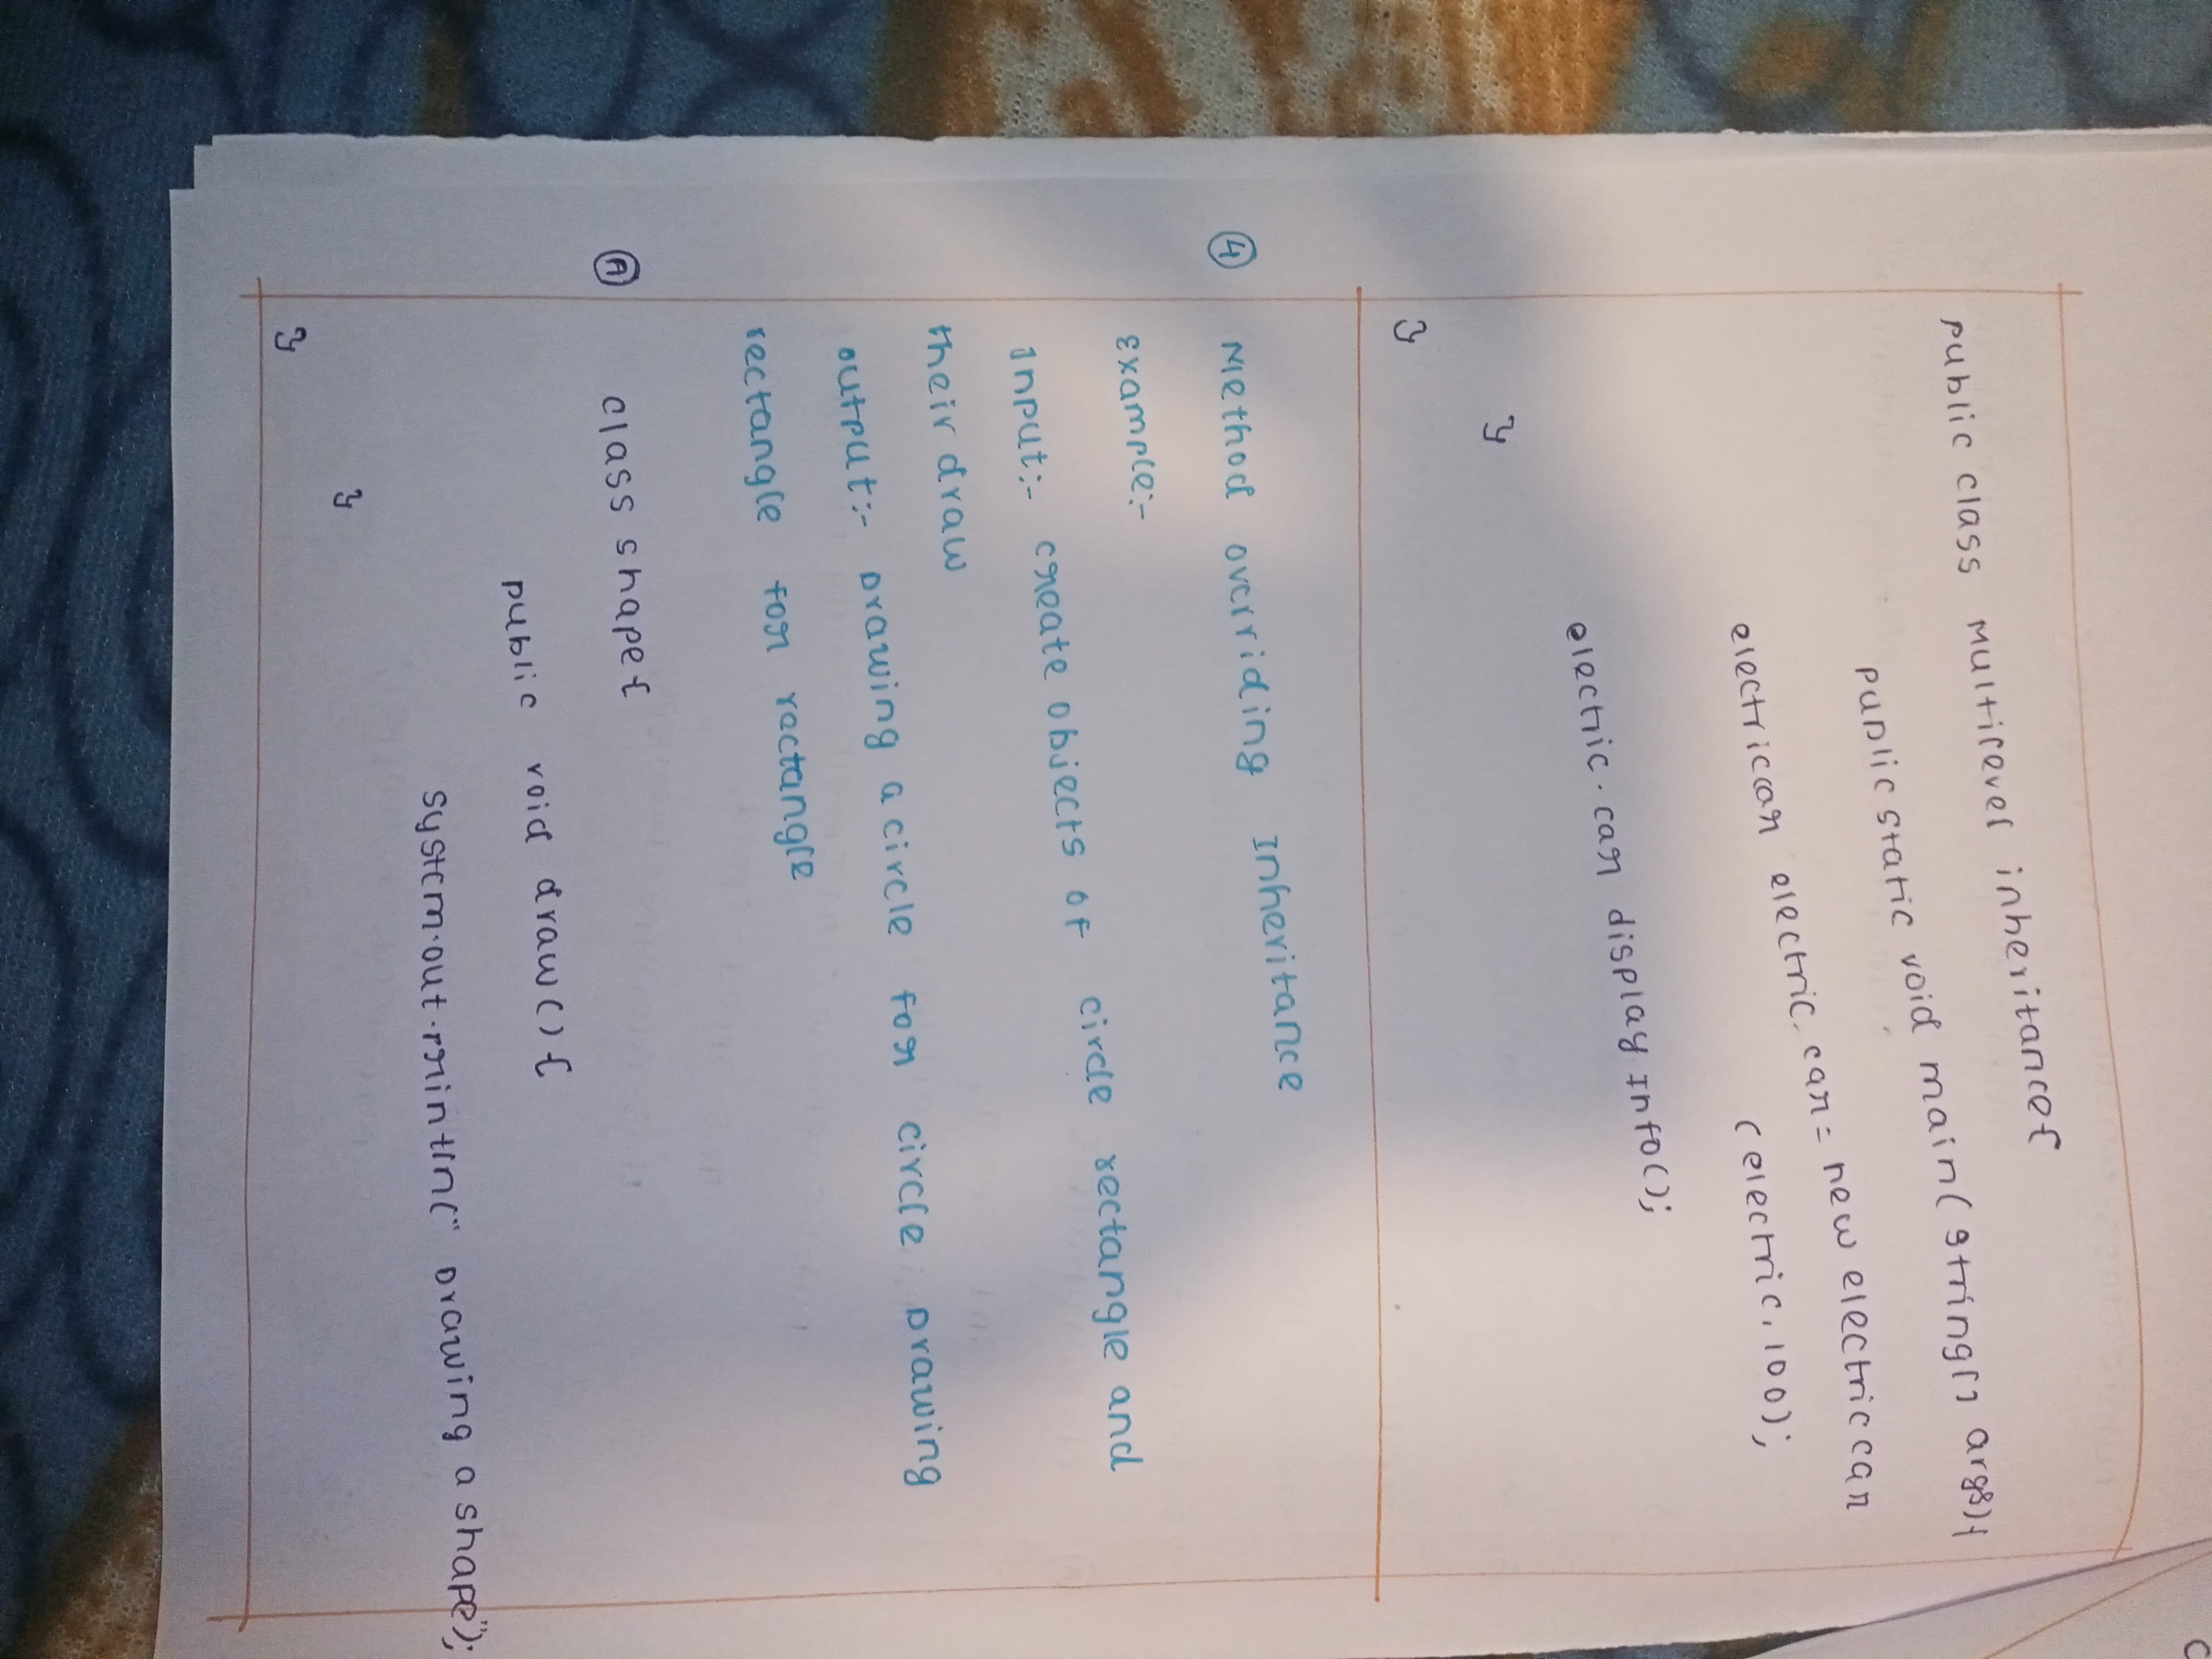 public class Multilevel inheritance{
public static void main(string[] args){
electricar electric.car = new electriccar
(electric, 100);
electric.car display Info();
}
}
④ Method overriding Inheritance
Example:-
Input:- create objects of circle rectangle and
their draw
output:- Drawing a circle for circle Drawing
rectangle for rectangle
Ⓐ class shape{
public void draw(){
system.out.println(" Drawing a shape");
}
}